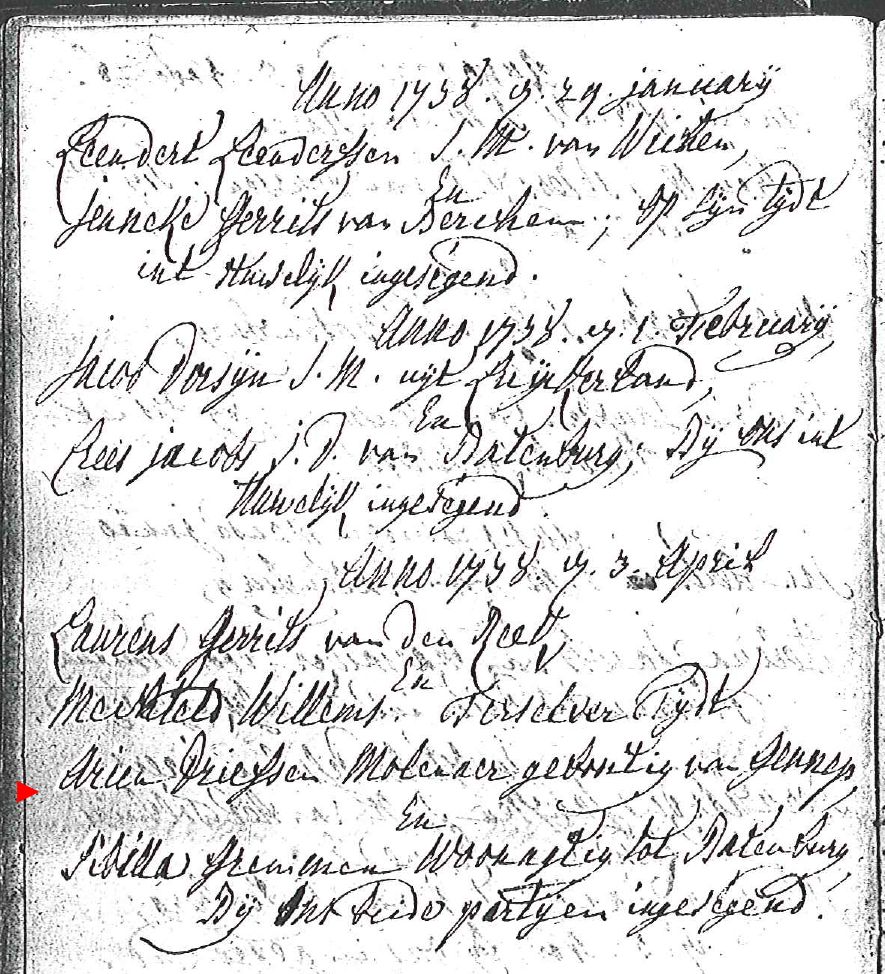 Anno 1738. d. 29. januarij
Leendert Leenderssen J. M. van Wichen,
En
jenneke Gerrits van Berchem; Op sijn tijdt
int Huwelijk ingesegend.
Anno 1738. d. 1. Februarij
jacob Dorsijn J. M. uijt
En
Cees jacobs J. D. van Batenburg; Bij Ons int
Huwelijk ingesegend.
Anno 1738. d. 3. April
Laurens Gerrits van den
En
Mechteld Willems Terselver Tijdt
Arien Driessen Molenaer geboortig van Gennep,
En
Sibilla Woonagtig tot Batenburg,
Bij Ons beide partijen ingesegend.